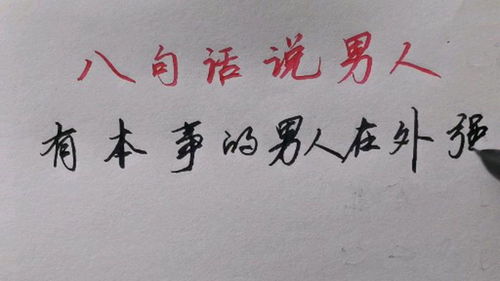 八句话说男人
有本事的男人在外强